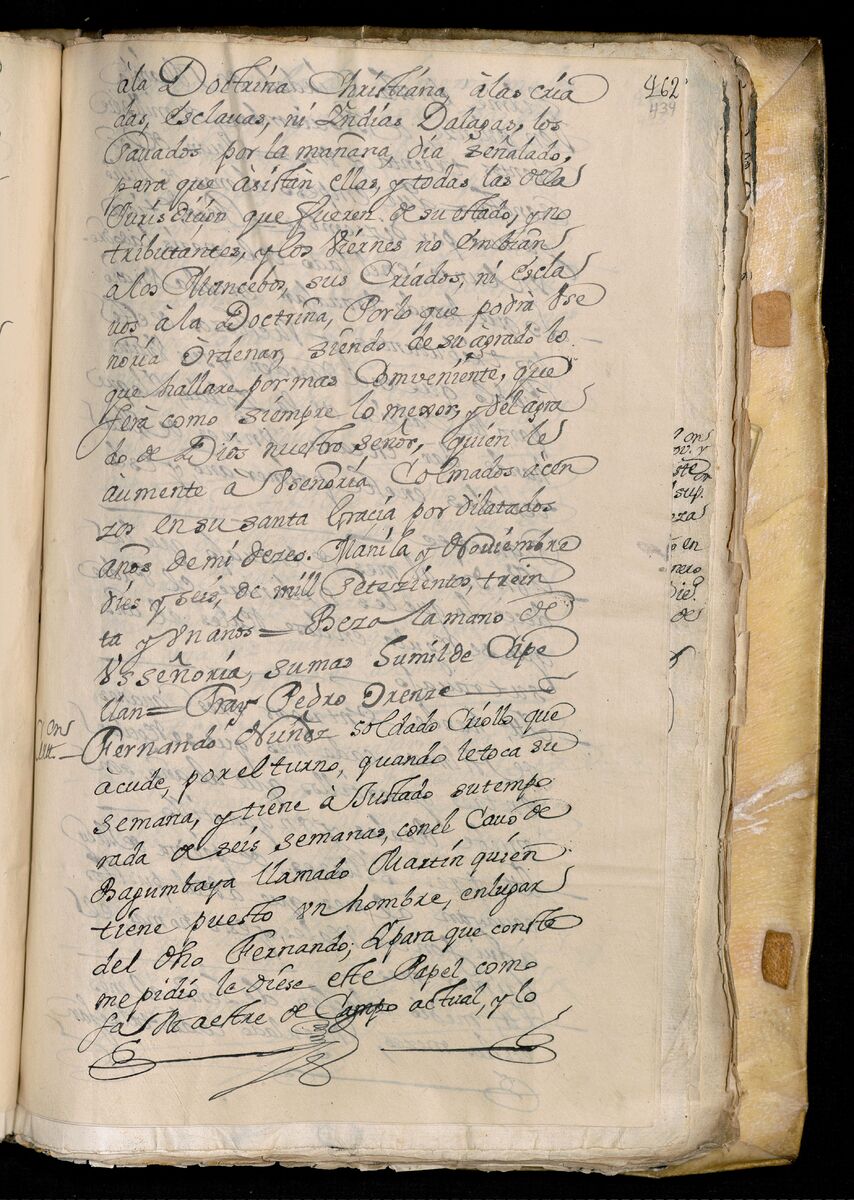 462
434
àla Doctrina Christiana, à las cria
das, esclauas, ni Yndias Dalagas, los
Sauados por la mañana, dia señalado,
para que àsistan ellas, y todas las dela
Jurisdiçion que fueren de su estado, y no
tributantes, y los Viernes no embian
a los Mancebos, sus Criados, ni escla
uos à la Doctrina, Por lo que podrà Vse
ñoria Ordenar, siendo de su àgrado lo
que hallare por mas Comveniente, que
serà como siempre lo mexor, y del àgra
do de Dios nuestro señor, quien le
àumente a Vseñoria Colmados àcen
zos en su santa Gracia por dilatados
años de mi dezeo. Manila y Noviembre
dies y seis, de mill seteziento, trein
ta y Vn años = Beza la mano de
Vsseñoria, su mas humilde Cape
llan = Fray Pedro Orenze
Fernando Nuñez soldado Criollo que
àcude, por el turno, quando le toca su
semana, y tiene à Justado su tempo
rada de seis semanas, con el Cauo de
Bagumbaya llamado Martin quien
tiene puesto vn hombre, en lugar
del dho Fernando; Y para que conste
me pidió le diese este Papel como
Maestre de Campo actual, y lo